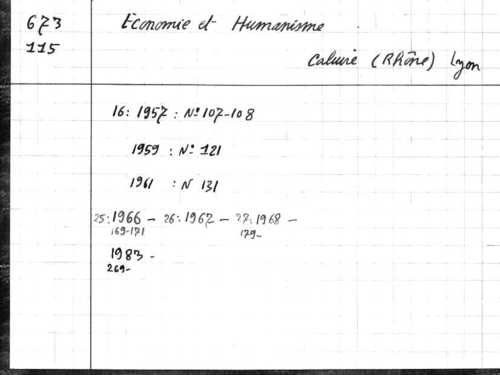 673 Economie et Humanisme
115 Caluire (Rhône) Lyon
16: 1957 : Nº 107-108
1959 : Nº 121
1961 : N 131
25: 1966 - 26: 1967 - 27: 1968 -
169-171 179-
1983 -
269-